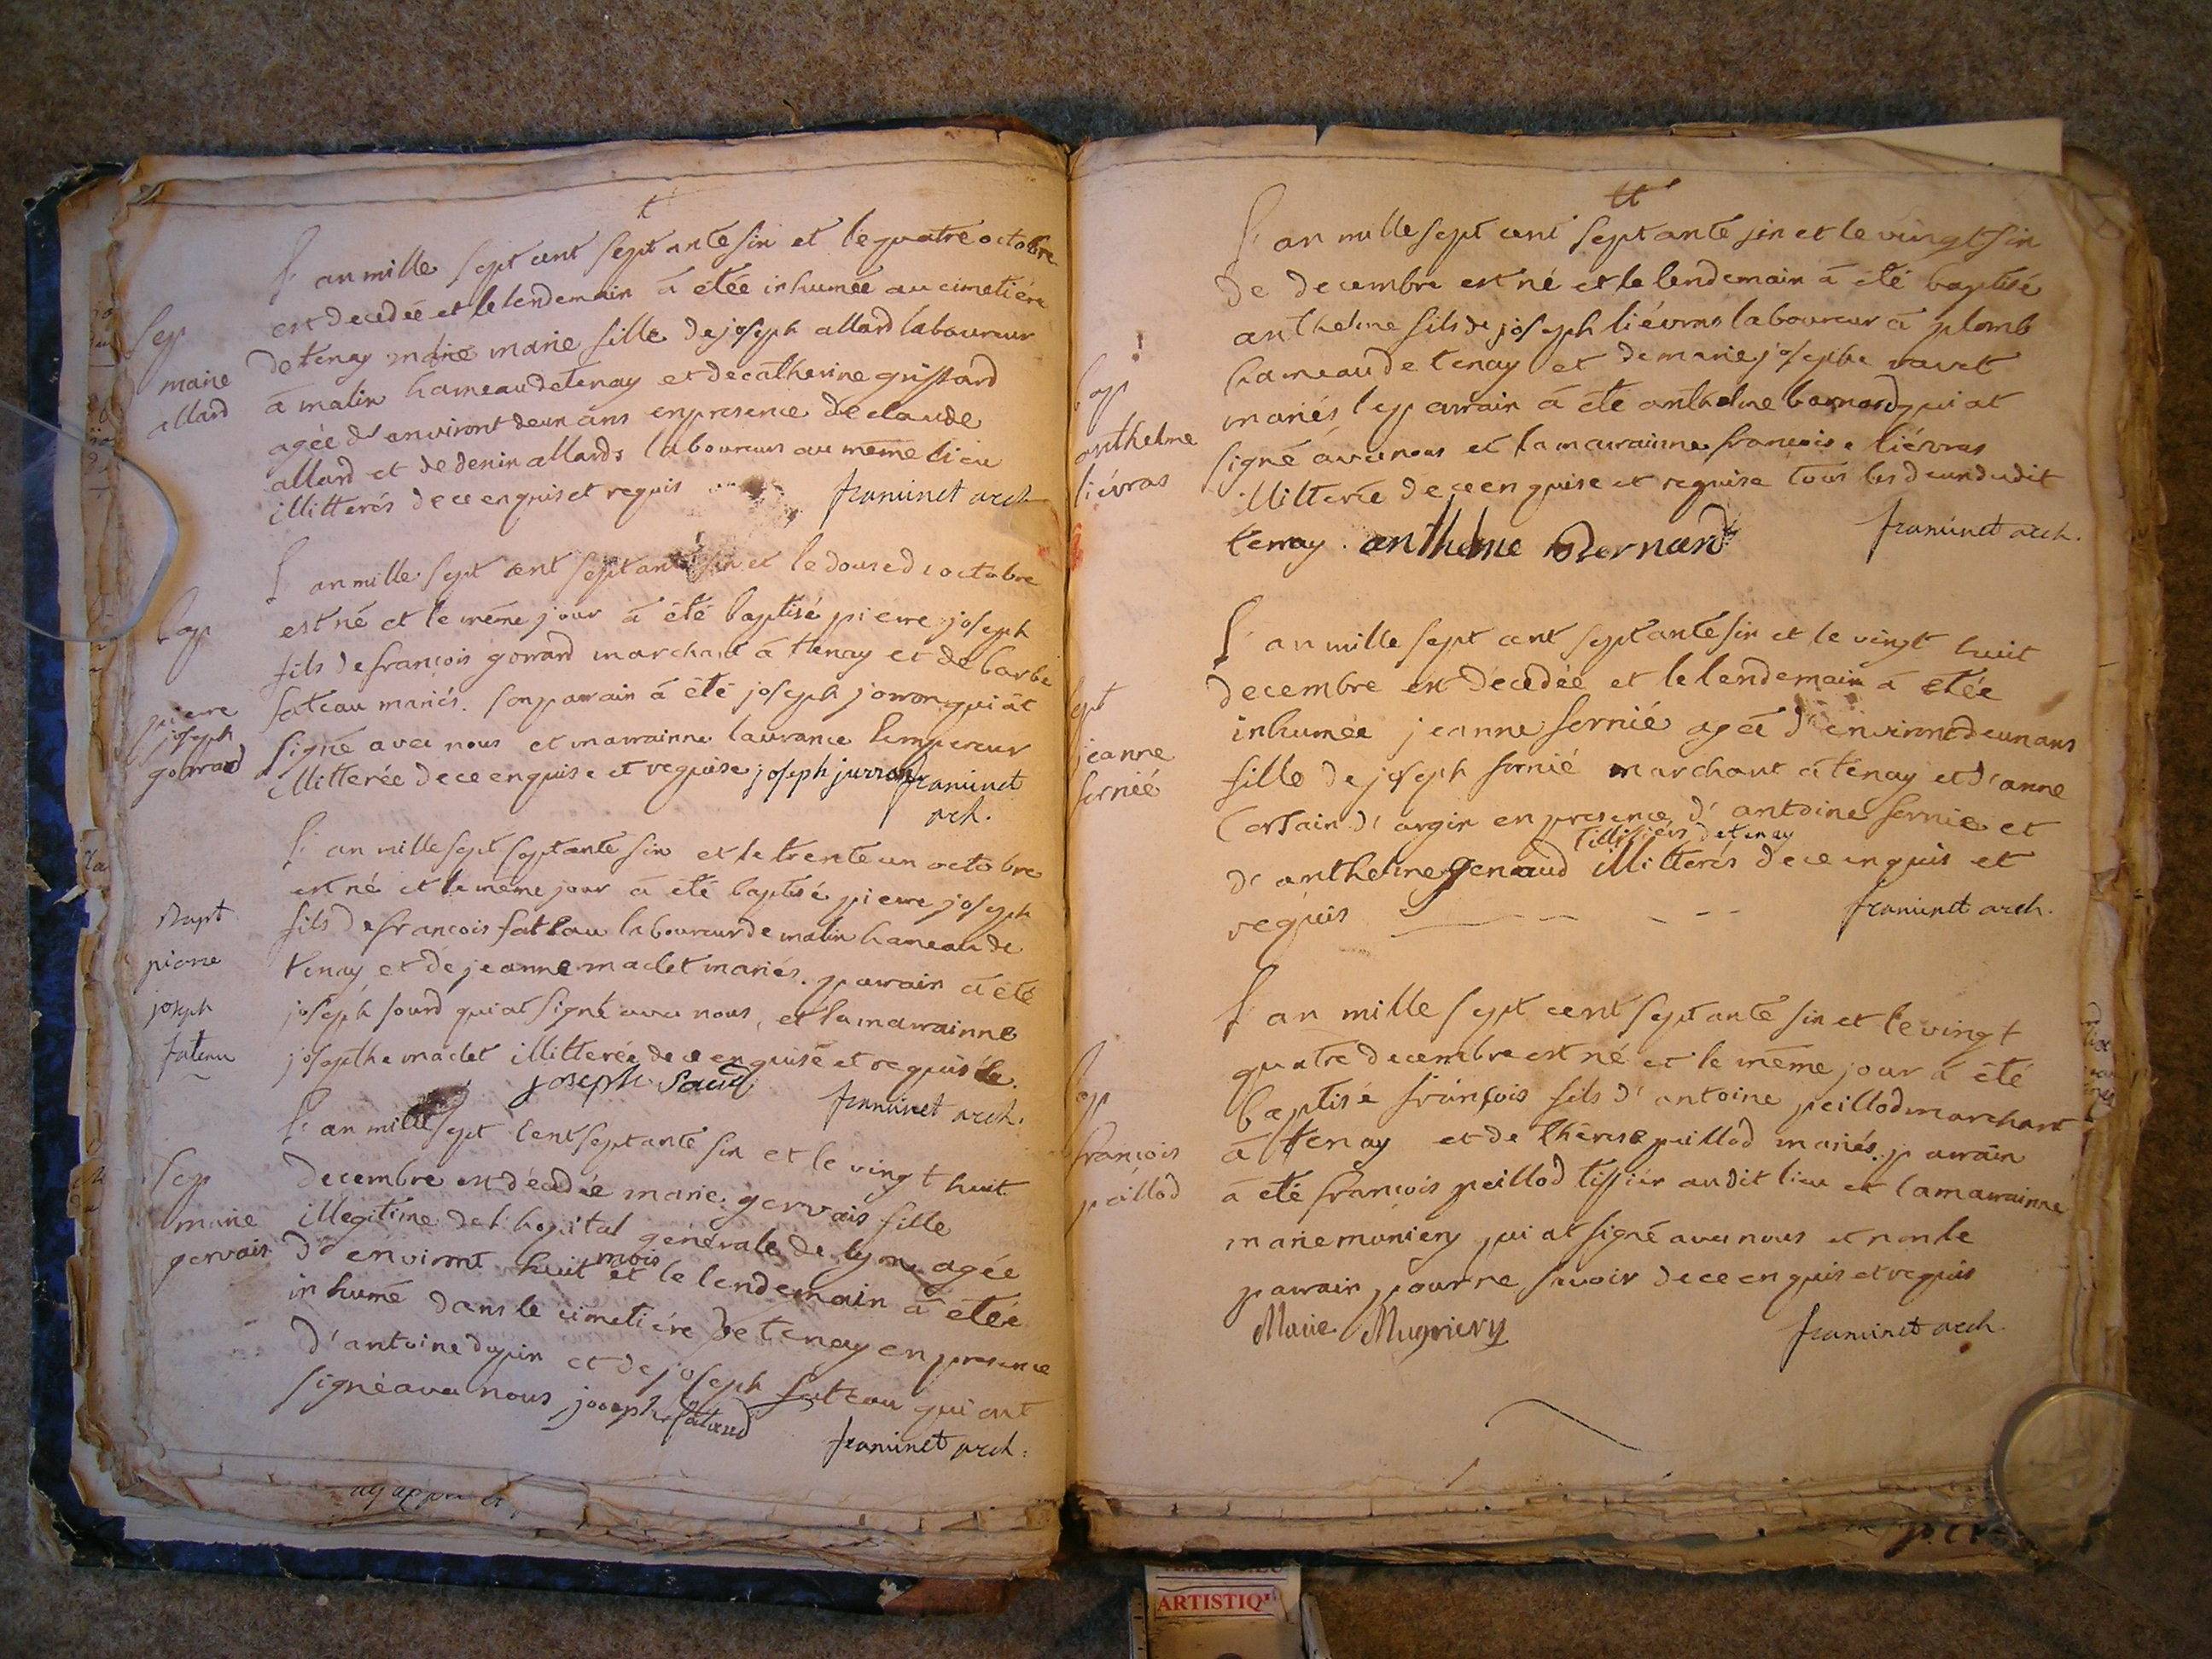 L'an mille sept cent septante six et le quatre octobre
est decedée et le lendemain à étée inhumée au cimetière
Sep
marie
allard
de tenay marie marie fille de joseph allard laboureur
à malix hameau de tenay et de catherine
agée d'environt deux ans en presence de claude
allard et de denin allards laboureurs au même lieu
illitterés de ce enquis et requis
framinet arch
L'an mille sept cent septante six et le douse d'octobre
Bap
pierre
joseph
gonrard
est né et le même jour à été baptisé pierre joseph
fils de françois gonrard marchant à tenay et de barbe
fateau mariés. Son parrain à été joseph jorron qui àt
signé avec nous et marrainne laurance Lempereur
illitterée de ce enquise et requise joseph jurron framinet
arch.
L'an mille sept septante six et le trente un octobre
Bapt
pierre
joseph
fateau
est né et le même jour à été baptisé pierre joseph
fils de françois fateau laboureur de malix hameau de
tenay et de jeanne maclet mariés. parrain à été
joseph sourd qui at signé avec nous, et la marrainne
josepthe maclet illitterée de ce enquise et requise.
joseph Sourd
framinet arch.
L'an mille sept cent septante six et le vingt huit
Sep
marie
gervais
decembre est décedée marie gervais fille
illegitime de l'hopital générale de lyon agée
mois
d'environt huit et le lendemain à étée
inhumé dans le cimetière de tenay en presence
d'antoine dupin et de joseph fateau qui ont
signé avec nous joseph fataud
framinet arch.
L'an mille sept cent septante six et le vingt six
de decembre est né et le lendemain à été baptisé
bap
anthelme
liévras
anthelme fils de joseph liévras laboureur à plomb
hameau de tenay et de marie josephe ravet
mariés le parrain à été anthelme bernard qui at
signé avec nous et la marrainne francoise liévras
illitterée de ce enquise et requise tous les deux dudit
tenay. anthelme Bernard
framinet arch.
L'an mille sept cent septante six et le vingt huit
Sept
jeanne
fornié
decembre est décedée et le lendemain à étée
inhumée jeanne fornié agée d'environt deux ans
fille de joseph fornié marchant à tenay et d'anne
Certain d'argix en presence d'antoine fornie et
tissiers de tenay
d'anthelme genaud illitterés de ce enquis et
requis
framinet arch.
L'an mille sept cent septante six et le vingt
bap
françois
peillod
quatre decembre est né et le même jour à été
baptisé françois fils d'antoine peillod marchant
à tenay et de therese peillod mariés. parrain
à été françois peillod tissier audit lieu et la marrainne
marie muniery qui at signé avec nous et non le
parrain pour ne savoir de ce enquis et requis
Marie Mugniery
framinet arch.
ARTISTIQ